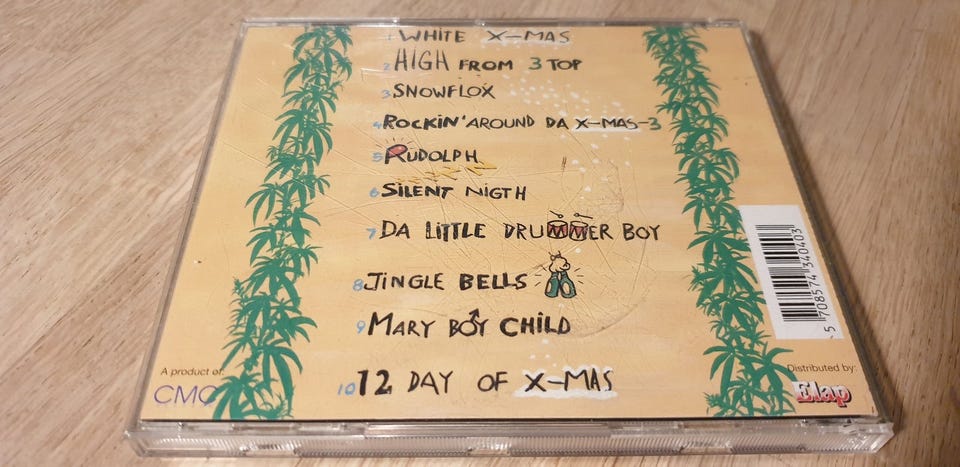 1 WHITE X-MAS
2 HIGH FROM 3 TOP
3 SNOWFLOX
4 ROCKIN' AROUND DA X-MAS-3
5 RUDOLPH
6 SILENT NIGTH
7 DA LITTLE DRUMMER BOY
8 JINGLE BELLS
9 MARY BOY CHILD
10 12 DAY OF X-MAS
5 708574 340403
A product of:
CMC
Distributed by:
Elap